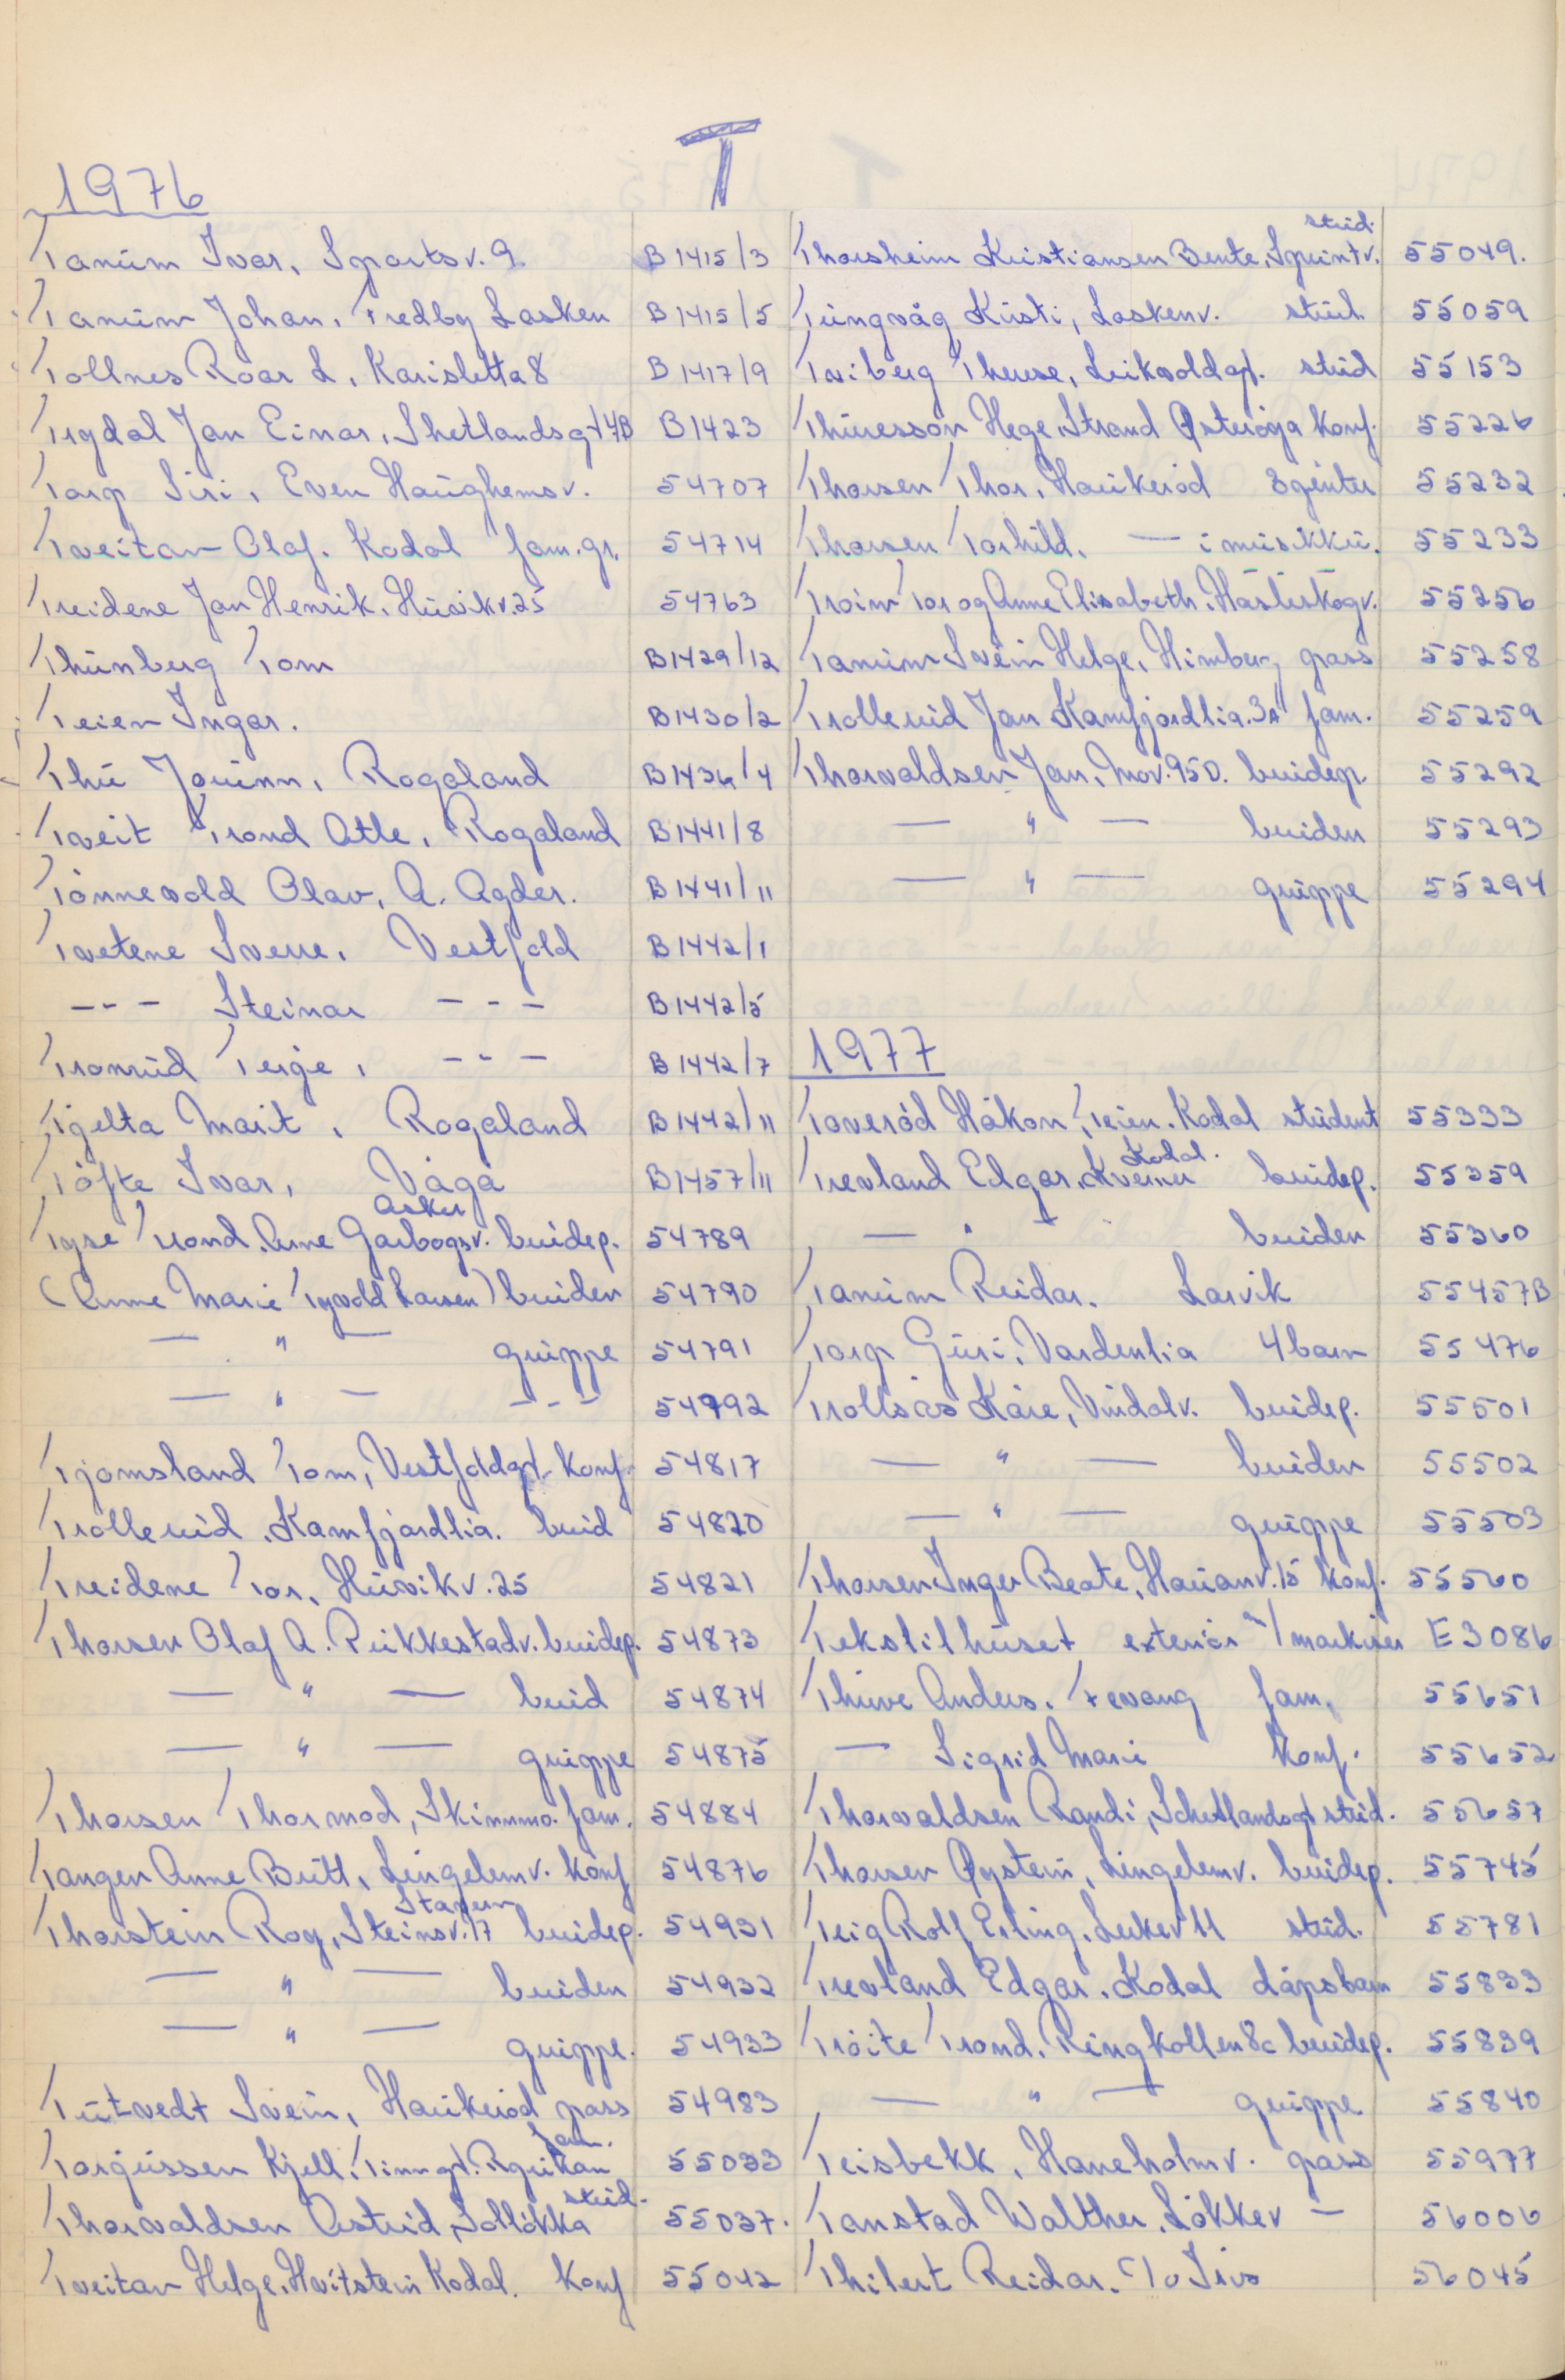 T
1976
Tanum Ivar, Sportsv. 9. B1415/3
Tanum Johan, Fredly Lasken B1415/5
Tollnes Roar L, Karisletta 8 B1417/9
Trydal Jan Einar, Shetlandsgt 4B B1423
Torp Siri, Even Haughemsv. 54707
Tveitan Olaf. Kodal fam.gr. 54714
Treidene Jan Henrik, Huvikv. 25 54763
Thunberg Tom B1429/12
Teien Ingar. B1430/2
Thu Jorunn, Rogaland B1436/4
Tveit Trond Atle, Rogaland B1441/8
Tønnevold Olav, A. Agder. B1441/11
Tvetene Sverre, Vestfold B1442/1
--- Steinar --- B1442/5
Tronrud Terje, --- B1442/7
Tjelta Marit, Rogaland B1442/11
Tøfte Ivar, Vågå B1457/11
Asker
Tyse Trond. Arne Garborgsv. brudep. 54789
(Anne Marie Tyvold Larsen) bruden 54790
— " — gruppe 54791
— " — --- 54792
Tjomsland Tom, Vestfoldgt. konf. 54817
Trollerud, Kamfjordlia. brud 54820
Treidene Tor, Huvikv. 25 54821
Thorsen Olaf A. Rukkestadv. brudep. 54873
— " — brud 54874
— " — gruppe 54875
Thorsen Thormod, Skinnmo. fam. 54884
Tangen Anne Britt, Lingelemv. konf 54876
Stavern
Thorstein Roy, Steinsv. 17 brudep. 54931
— " — bruden 54932
— " — gruppe. 54933
Tutvedt Svein, Haukerød pass 54983
fam.
Torgussen Kjell, Tinngt. Rjukan 55033
stud.
Thorvaldsen Astrid, Solløkka 55037.
Tveitan Helge, Hvitstein Kodal. konf 55042
stud.
Thorsheim Kristiansen Bente, Sprintv. 55049.
Tungvåg Kirsti, Laskenv. stud. 55059
Tviberg Therese, Leikvollgt. stud 55153
Thuresson Hege, Strand Østerøya konf. 55226
Thorsen Thor, Haukerød 3 jenter 55232
Thorsen Torhild, — i musikku. 55233
Troim Tor og Anne Elisabeth, Håsteskogv. 55256
Tanum Svein Helge, Himberg pass 55258
Trollerud Jan Kamfjordlia. 3A fam. 55259
Thorvaldsen Jan, Mov. 95D. brudep. 55292
— " — bruden 55293
— " — gruppe 55294
1977
Toverød Håkon, Teien. Kodal student 55333
Kodal.
Trevland Edgar, Kverner brudep. 55359
— " — bruden 55360
Tanum Reidar. Larvik 55457B
Torp Guri, Vardenlia 4 barn 55476
Trollsås Kåre, Vindalv. brudep. 55501
— " — bruden 55502
— " — gruppe 55503
Thorsen Inger Beate, Hauanv. 15 konf. 55560
Tekstilhuset exteriør m/ markiser E3086
Thuve Anders. Fevang fam. 55651
— Sigrid Marie konf. 55652
Thorvaldsen Randi, Schetlandsgt stud. 55657
Thorsen Øystein, Lingelemv. brudep. 55745
Teig Rolf Erling. Lerkev 11 stud. 55781
Trevland Edgar. Kodal dåpsbarn 55833
Trøite Trond. Ringkollen 8c brudep. 55839
— " — gruppe 55840
Teisbekk, Haneholmv. pass 55977
Tanstad Walther, Løkkev — 56006
Thilert Reidar. 56045